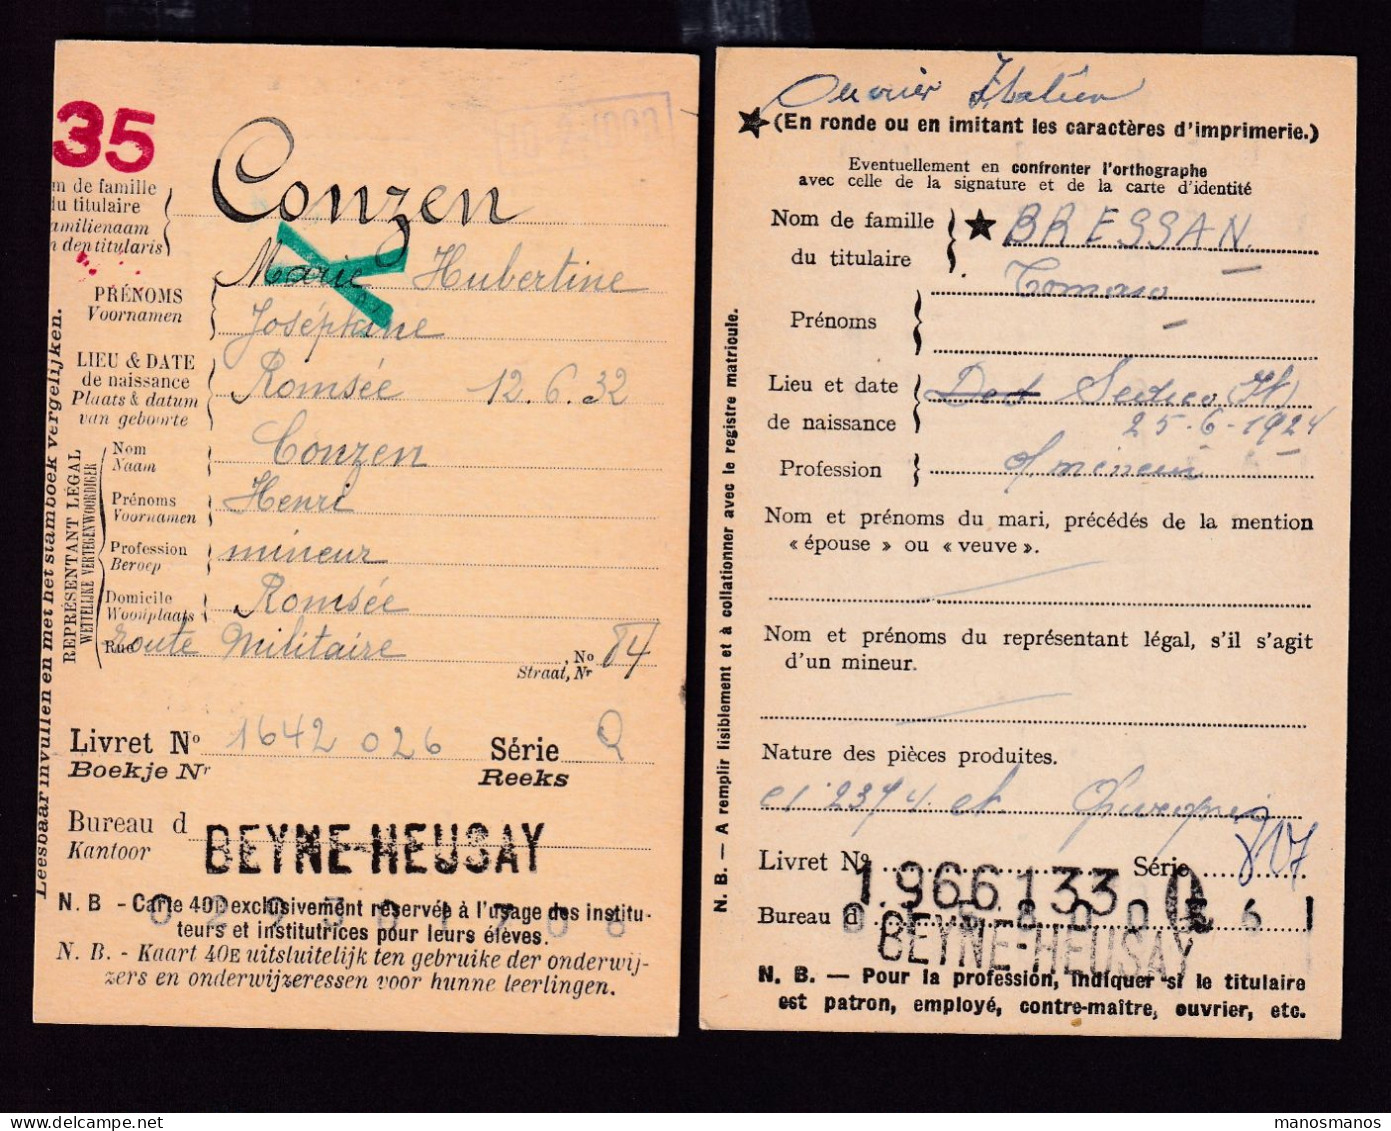 35
Conzen
m de famille
du titulaire
amilienaam
n den titularis
Marie Hubertine
PRÉNOMS
Voornamen
Joséphine
LIEU & DATE
de naissance
Plaats & datum
van geboorte
Romsée 12.6.32
REPRÉSENTANT LÉGAL
WETTELIJKE VERTEGENWOORDIGER
Nom
Naam
Conzen
Prénoms
Voornamen
Henri
Profession
Beroep
mineur
Domicile
Woonplaats
Romsée
Rue route Militaire, No 84
Straat, Nr
Livret No 1642 026 Série Q
Boekje Nr Reeks
Bureau d
Kantoor
BEYNE-HEUSAY
N. B - Carte 40D exclusivement réservée à l'usage des institu-
teurs et institutrices pour leurs élèves.
N. B. - Kaart 40E uitsluitelijk ten gebruike der onderwij-
zers en onderwijzeressen voor hunne leerlingen.
Leesbaar invullen en met het stamboek vergelijken.
Ouvrier Italien
(En ronde ou en imitant les caractères d'imprimerie.)
Eventuellement en confronter l'orthographe
avec celle de la signature et de la carte d'identité
Nom de famille
du titulaire
BRESSAN
Tomaso
Prénoms
Lieu et date
de naissance
25-6-1924
Profession
o/ mineur
Nom et prénoms du mari, précédés de la mention
« épouse » ou « veuve ».
Nom et prénoms du représentant légal, s'il s'agit
d'un mineur.
Nature des pièces produites.
Livret No 1.966133 Série Q 807
Bureau d
BEYNE-HEUSAY
N. B. — Pour la profession, indiquer si le titulaire
est patron, employé, contre-maître, ouvrier, etc.
N. B. — A remplir lisiblement et à collationner avec le registre matricule.
manosmanos